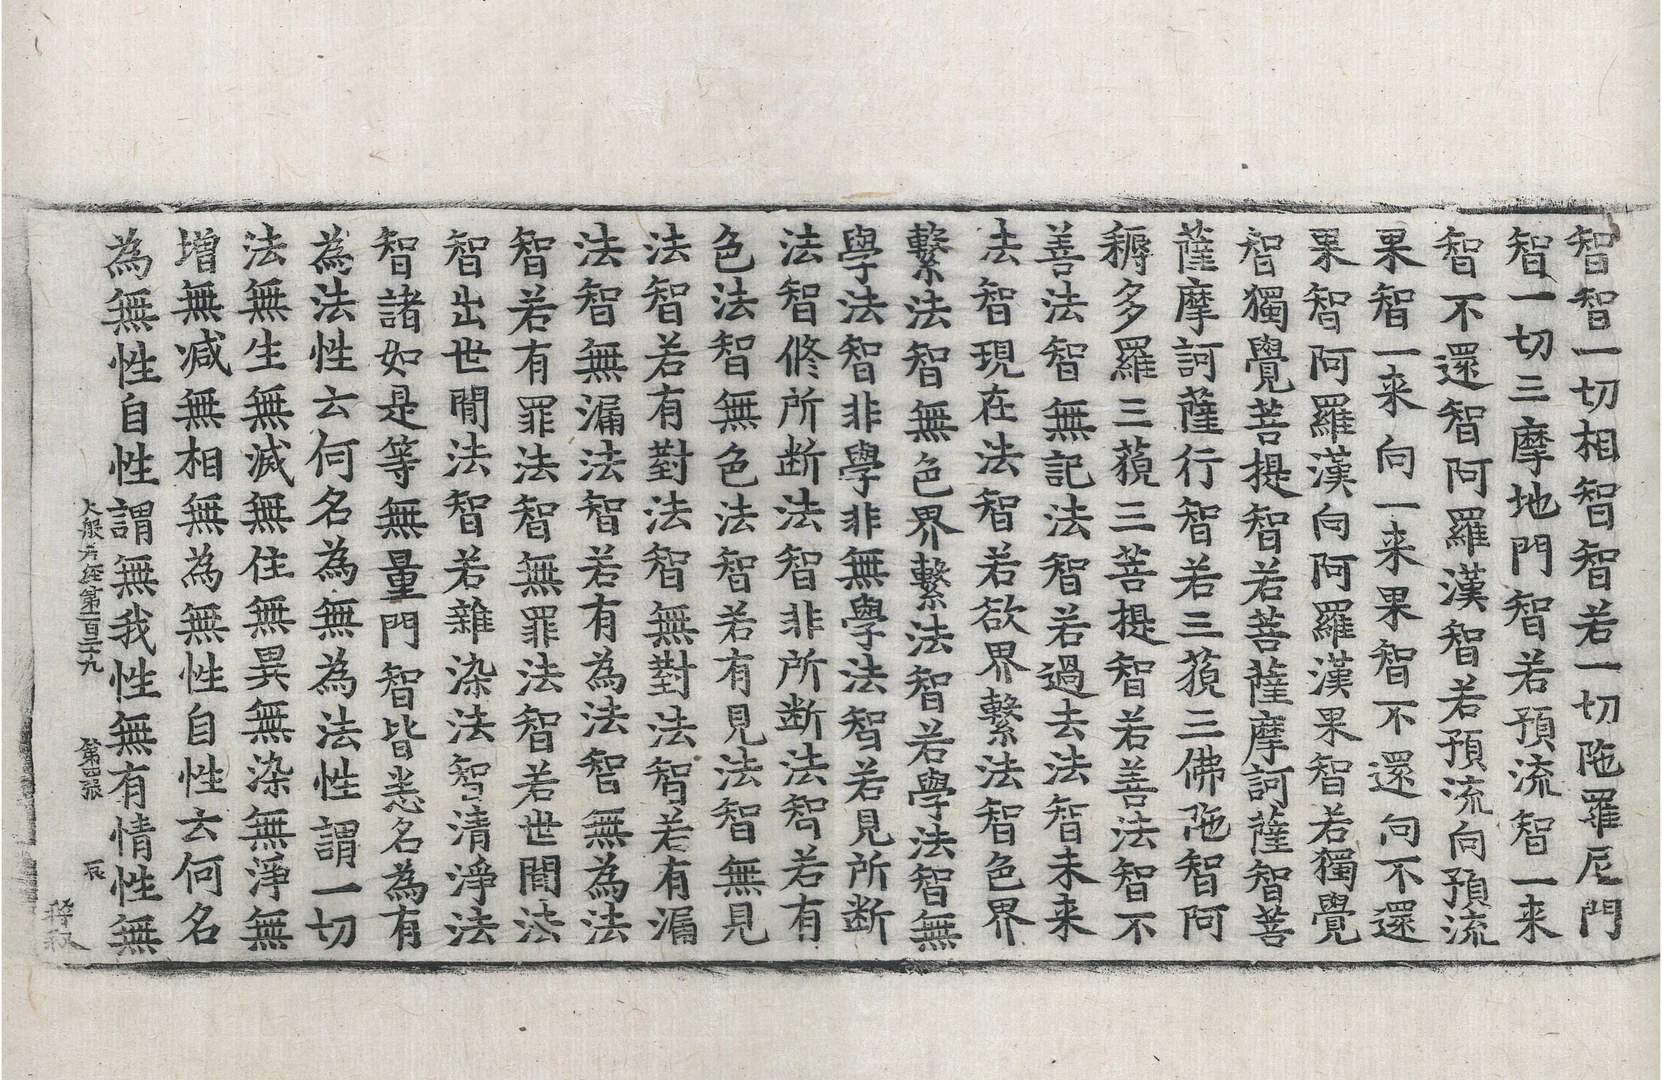 智智一切相智智若一切陁羅尼門
智一切三摩地門智若預流智一来
智不還智阿羅漢智若預流向預流
果智一来向一来果智不還向不還
果智阿羅漢向阿羅漢果智若獨覺
智獨覺菩提智若菩薩摩訶薩智菩
薩摩訶薩行智若三藐三佛陁智阿
耨多羅三藐三菩提智若善法智不
善法智無記法智若過去法智未来
法智現在法智若欲界繫法智色界
繫法智無色界繫法智若學法智無
學法智非學非無學法智若見所断
法智修所断法智非所断法智若有
色法智無色法智若有見法智無見
法智若有對法智無對法智若有漏
法智無漏法智若有為法智無為法
智若有罪法智無罪法智若世間法
智出世間法智若雜染法智清淨法
智諸如是等無量門智皆悉名為有
為法性云何名為無為法性謂一切
法無生無滅無住無異無染無淨無
增無減無相無為無性自性云何名
為無性自性謂無我性無有情性無
大般若経第一百二十九 第四張 辰